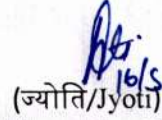 16/5
(ज्योति/Jyoti)